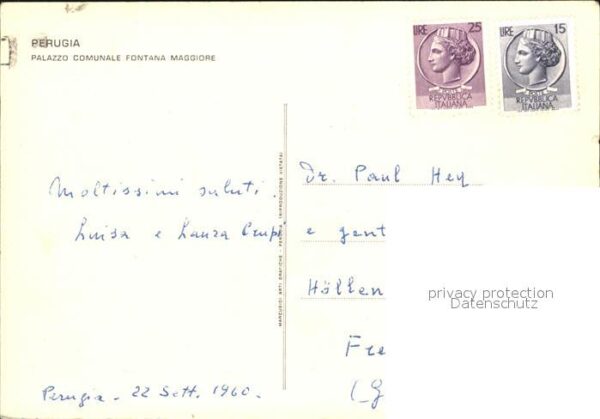 PERUGIA
PALAZZO COMUNALE FONTANA MAGGIORE
LIRE 25
POSTE
REPVBBLICA
ITALIANA
LIRE 15
POSTE
REPVBBLICA
ITALIANA
Moltissimi saluti.
Luisa e Laura
Perugia - 22 Sett. 1960.
MARZUSIDI ARTI GRAFICHE - PERUGIA (RIPRODUZIONE VIETATA)
Dr. Paul Hey
e gent
Höllen
Fre
(G
privacy protection
Datenschutz